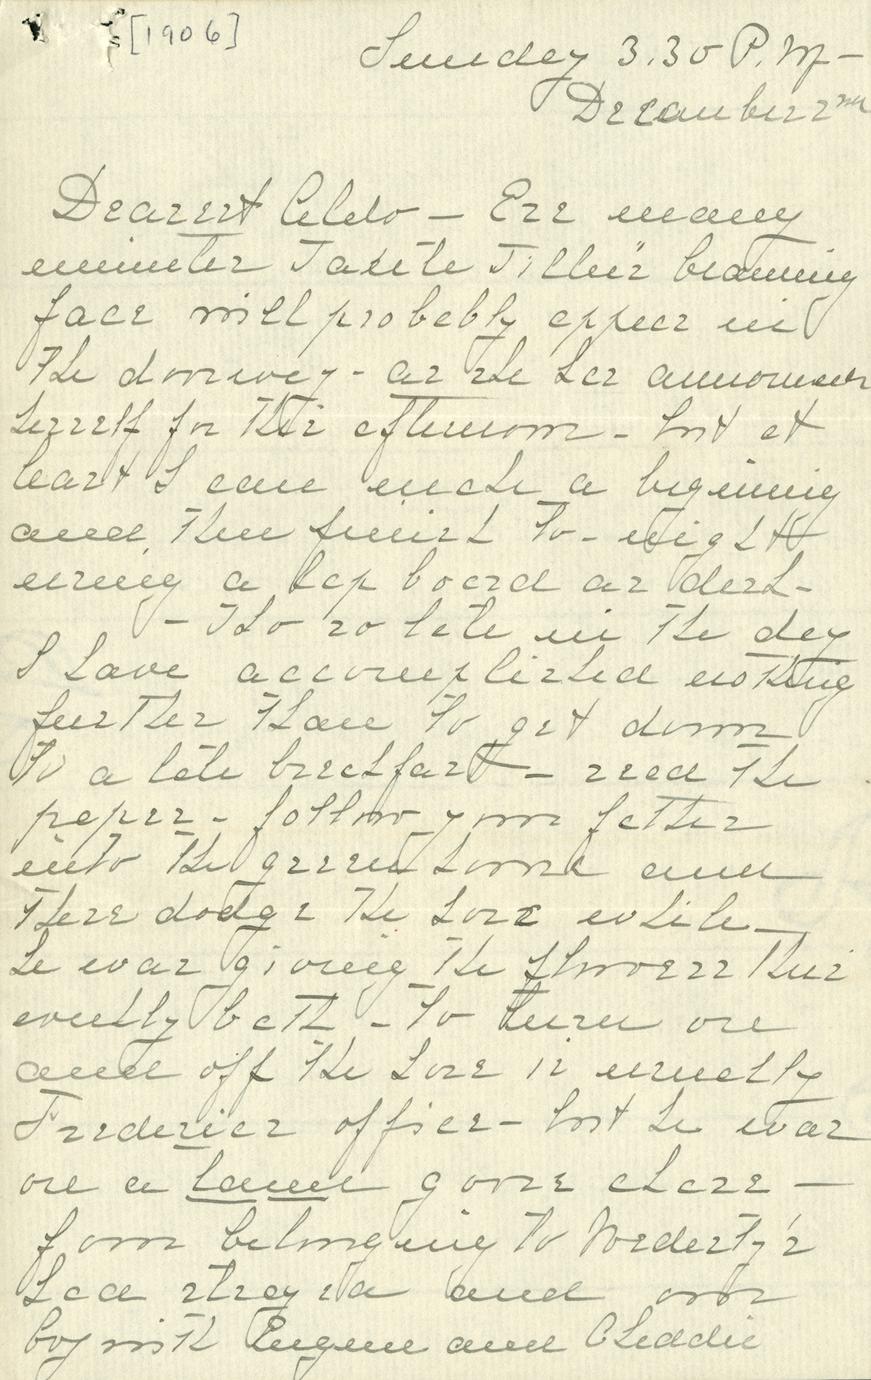 [1906]
Sunday 3.30 P.M. —
December 2nd
Dearest Aldo — Ere many
minutes Tante Tillie's beaming
face will probably appear in
the doorway - as she has announced
herself for this afternoon - but at
least I can make a beginning
and then finish to-night
using a lap board as desk -
- Tho so late in the day
I have accomplished nothing
further than to get down
to a late breakfast — read the
paper - follow your father
into the green house and
there dodge the hose while —
he was giving the flowers their
weekly bath - To turn on
and off the hose is usually
Frederics office - but he was
on a tame goose chase —
four belonging to Moderty's
had strayed and our
boy with Eugene and Cheddie